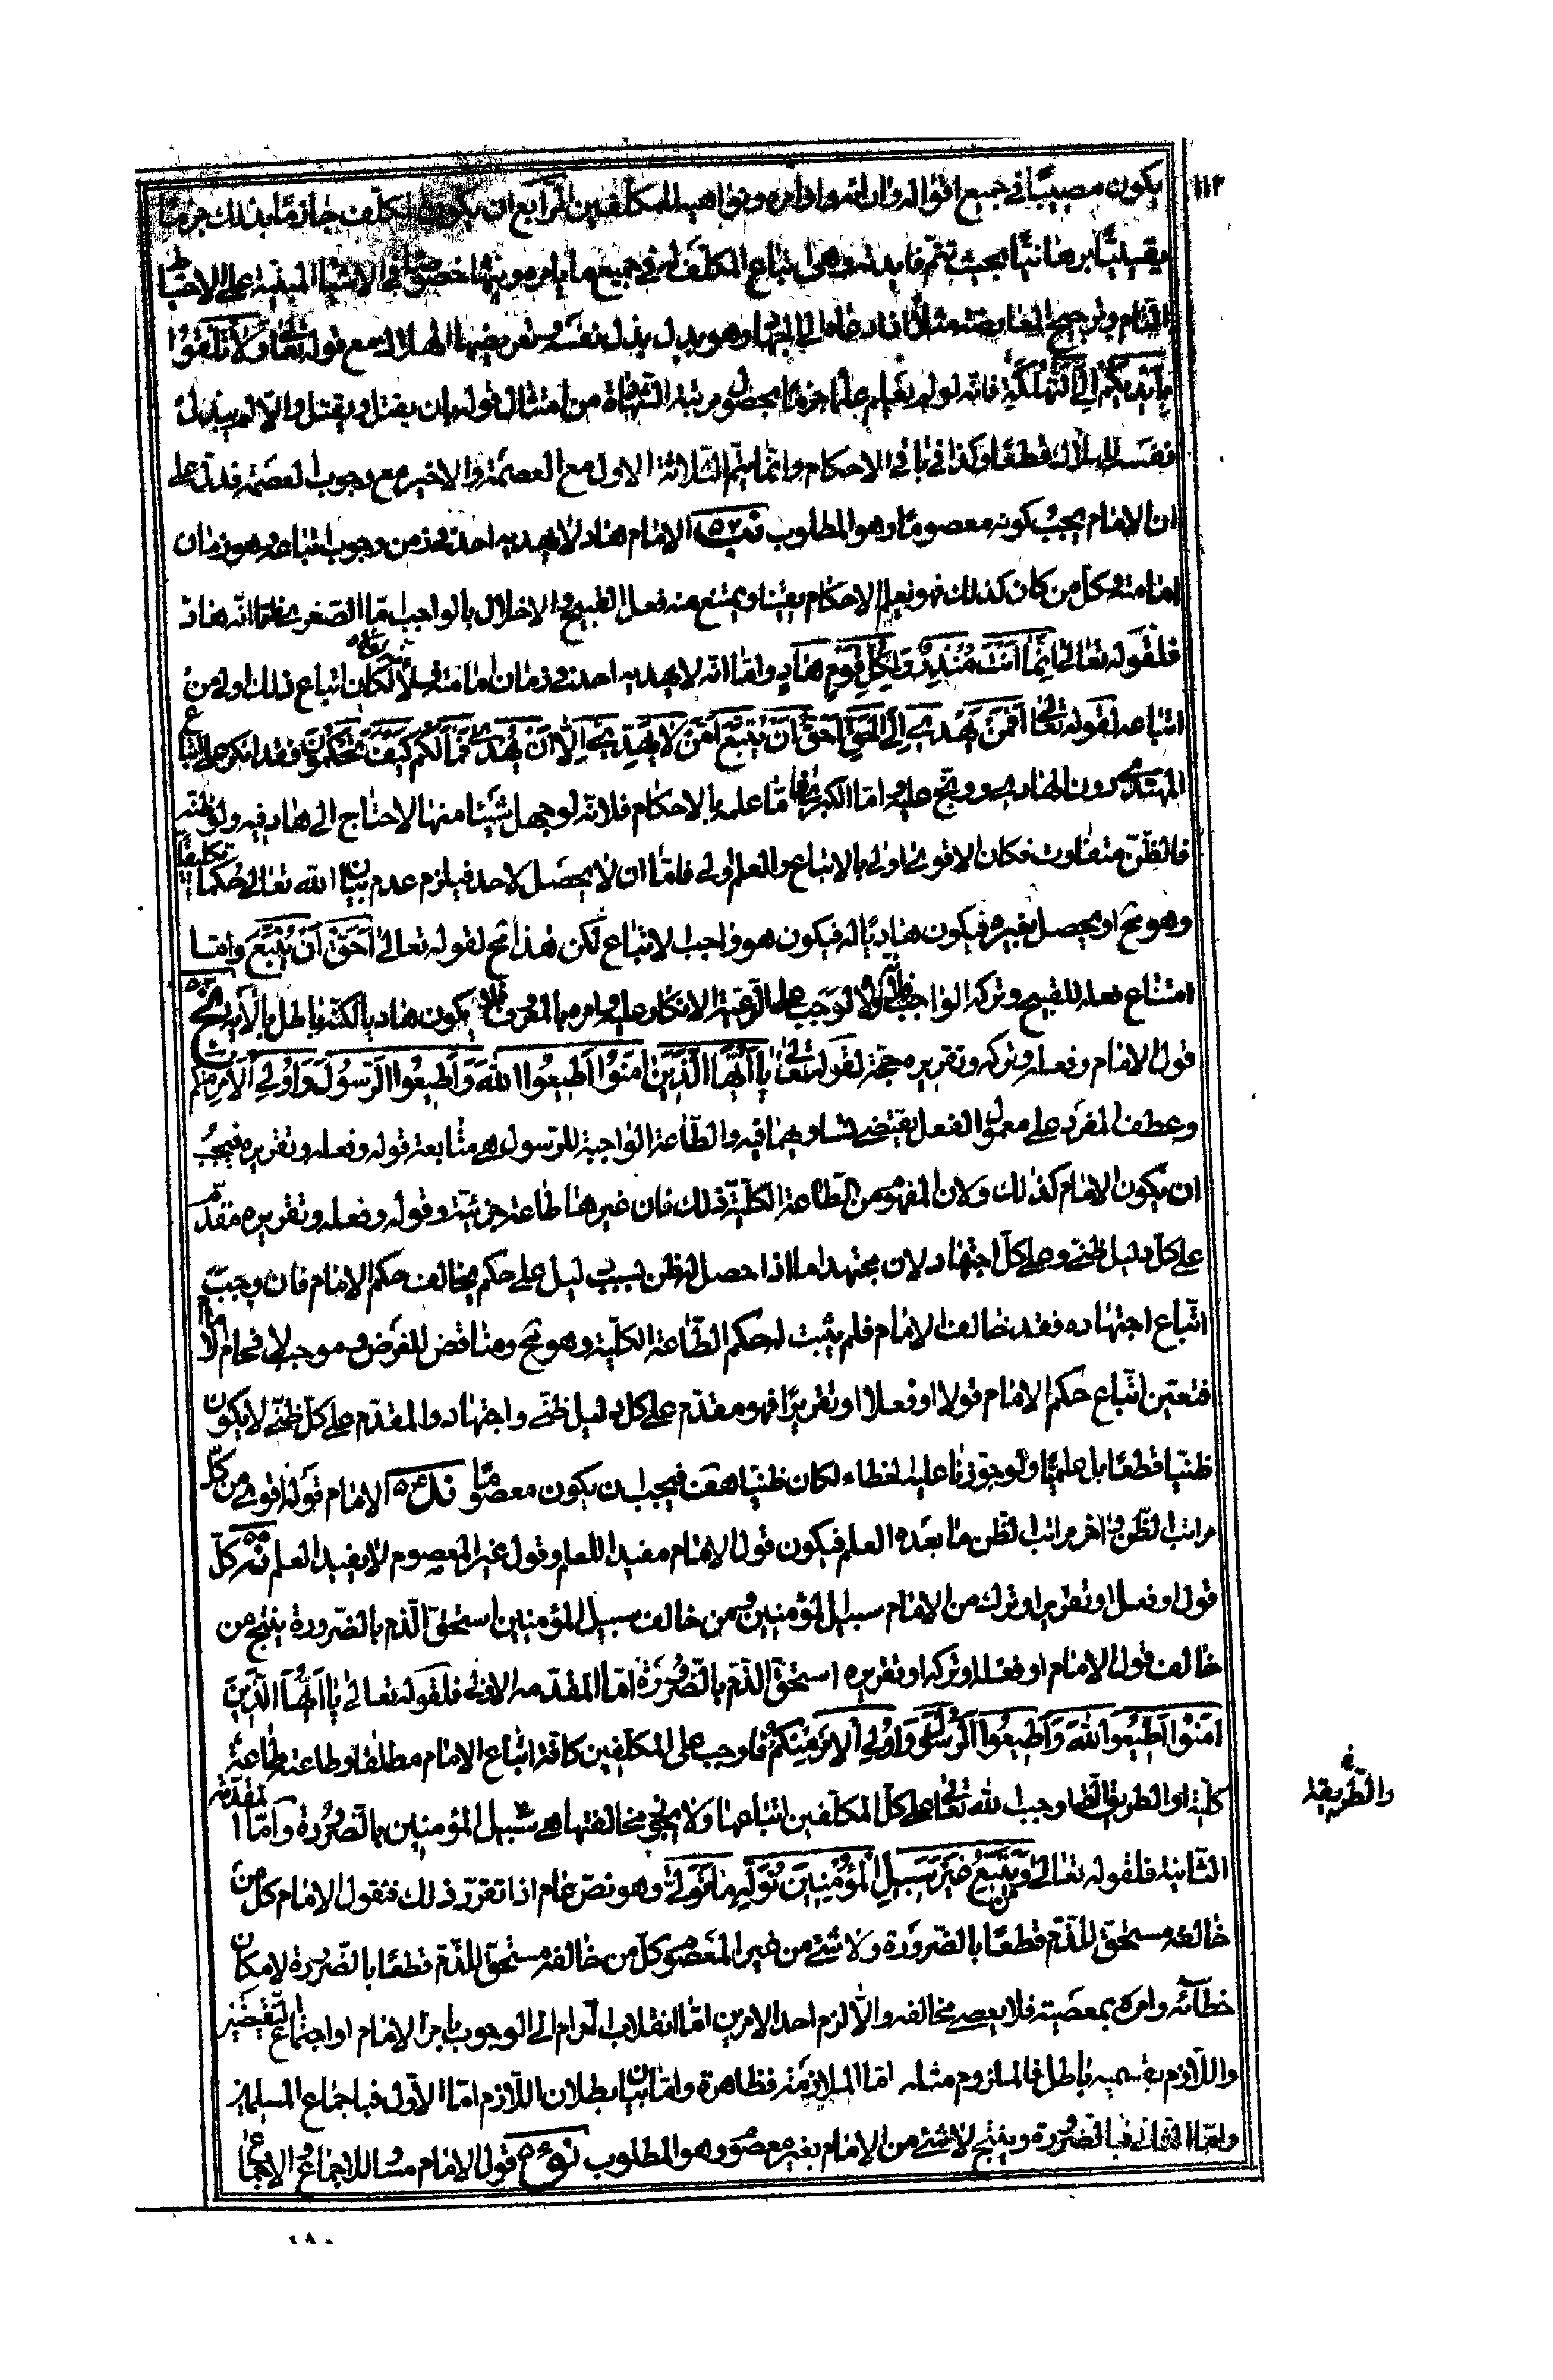 ١١٣
يكون مصيبًا في جميع اقواله وان اقدم واوامره ونواهيه للمكلفين الرابع ان يكون المكلف جازمًا بذلك جزمًا
يقينيًّا برهانيًّا بحيث تتم فايدته وهي اتباع المكلف له في جميع ما يامره وينها خصوصًا في الاشياء المبنية على الاحتياط
التام وترجيح المعارضة مثلًا اذا دعاه الى الجهاد وهو بدل بذل نفسه وتعريضها للهلاك مع قوله تعالى وَلَا تُلْقُوا
بِاَيْدِيكُمْ اِلَى التَّهْلُكَةِ فانه لو لم يعلم علمًا جزمًا بحصول مرتبة الشهادة من امتثال قوله وان يقتل ويقتل والا لم يبذل
نفسه للهلاك قطعًا وكذا في باقي الاحكام وانما يتم الثلاثة الاول مع العصمة والاخير مع وجوب العصمة فدل على
ان الامام يجب كونه معصومًا وهو المطلوب نب ٥٢ الامام هاد لا يهديه احد في زمن وجوب اتباعه وهو زمان
امامته وكل من كان كذلك فهو يعلم الاحكام يقينا ويمتنع منه فعل القبيح والاخلال بالواجب اما الصغرى فاما انه هاد
فلقوله تعالى اِنَّمَا اَنْتَ مُنْذِرٌ وَلِكُلِّ قَوْمٍ هَادٍ واما انه لا يهديه احد في زمان امامته فلانه لكان اتباع ذلك اولى من
اتباعه لقوله تعالى اَفَمَنْ يَهْدِي اِلَى الْحَقِّ اَحَقُّ اَنْ يُتَّبَعَ اَمَّنْ لَا يَهِدِّي اِلَّا اَنْ يُهْدَى فَمَا لَكُمْ كَيْفَ تَحْكُمُونَ فقد انكر على اتباع
المهتدي دون الهادي ووبخ عليه واما الكبرى فاما علمه بالاحكام فلانه لو جهل شيئا منها لاحتاج الى هاد فيه ولو ظنه
فالظن متفاوت فكان الاقوى اولى بالاتباع والعلم اولى فاما ان لا يحصل لاحد فيلزم عدم بيان الله تعالى حُكمًا تكليفيًا
وهو مح او يحصل بغيره فيكون هاديًا له فيكون هو واجب الاتباع لكن هذا مح لقوله تعالى اَحَقُّ اَنْ يُتَّبَعَ واما
امتناع فعله للقبيح وتركه الواجب فلانه لولا لوجب على الرعية الانكار عليه وامره بالمعروف فلا يكون هاديا لكنه باطل بالآية نج ٥٣
قول الامام وفعله وتركه وتقريره حجة لقوله تعالى يَا اَيُّهَا الَّذِينَ اٰمَنُوا اَطِيعُوا اللهَ وَاَطِيعُوا الرَّسُولَ وَاُولِي الْاَمْرِ مِنْكُمْ
وعطف المفرد على معمول الفعل يقتضي تساويهما فيه والطاعة الواجبة للرسول هي متابعة قوله وفعله وتقريره فيجب
ان يكون الامام كذلك ولان المفهوم من الطاعة الكلية ذلك فان غيرها طاعة جزئية وقوله وفعله وتقريره مقدم
على كل دليل ظني وعلى كل اجتهاد لان مجتهدا ما اذا حصل له ظن بسبب دليل على حكم يخالف حكم الامام فان وجب
اتباع اجتهاده فقد خالف الامام فلم يثبت له حكم الطاعة الكلية وهو مح ومناقض للغرض وموجب لافحام الامام
فتعين اتباع حكم الامام قولا او فعلا او تقريرًا فهو مقدم على كل دليل ظني واجتهاد والمقدم على كل ظني لا يكون
ظنيا قطعًا بل علميًّا ولو جوزنا عليه الخطاء لكان ظنيا هف فيجب ان يكون معصومًا ند ٥٤ الامام قوله اقوى من كل
مراتب الظن واخر مراتب الظن ما بعده العلم فيكون قول الامام مفيدا للعلم وقول غير المعصوم لا يفيد العلم نه ٥٥ كل
قول او فعل او تقرير او ترك من الامام سبيل المؤمنين ومن خالف سبيل المؤمنين استحق الذم بالضرورة ينتج من
خالف قول الامام او فعله او تركه او تقريره استحق الذم بالضرورة اما المقدمة الاولى فلقوله تعالى يَا اَيُّهَا الَّذِينَ
اٰمَنُوا اَطِيعُوا اللهَ وَاَطِيعُوا الرَّسُولَ وَاُولِي الْاَمْرِ مِنْكُمْ فاوجب على المكلفين كافة اتباع الامام مطلقا وطاعته طاعة
كلية او الطريق التي اوجب الله تعالى على كل المكلفين اتباعها ولا يجوز مخالفتها هي سبيل المؤمنين بالضرورة وَاَمَّا المقدمة
والطريقة
الثانية فلقوله تعالى وَيَتَّبِعْ غَيْرَ سَبِيلِ الْمُؤْمِنِينَ نُوَلِّهِ مَا تَوَلَّى وهو نص عام اذا تقرر ذلك فنقول الامام كل من
خالفه مستحق للذم قطعًا بالضرورة ولا شئ من غير المعصوم كل من خالفه مستحق للذم قطعًا بالضرورة لامكان
خطائه وامره بمعصية فلا يعصي مخالفه والا لزم احد الامرين اما انقلاب الحرام الى الوجوب بامر الامام او اجتماع النقيضين
واللازم بقسميه باطل فالملزوم مثله اما الملازمة فظاهرة واما بيان بطلان اللازم اما الاول فباجماع المسلمين
واما الثاني فبالضرورة وينتج لا شئ من الامام بغير معصوم وهو المطلوب نو ٥٦ قول الامام مساو للاجماع والاجماع